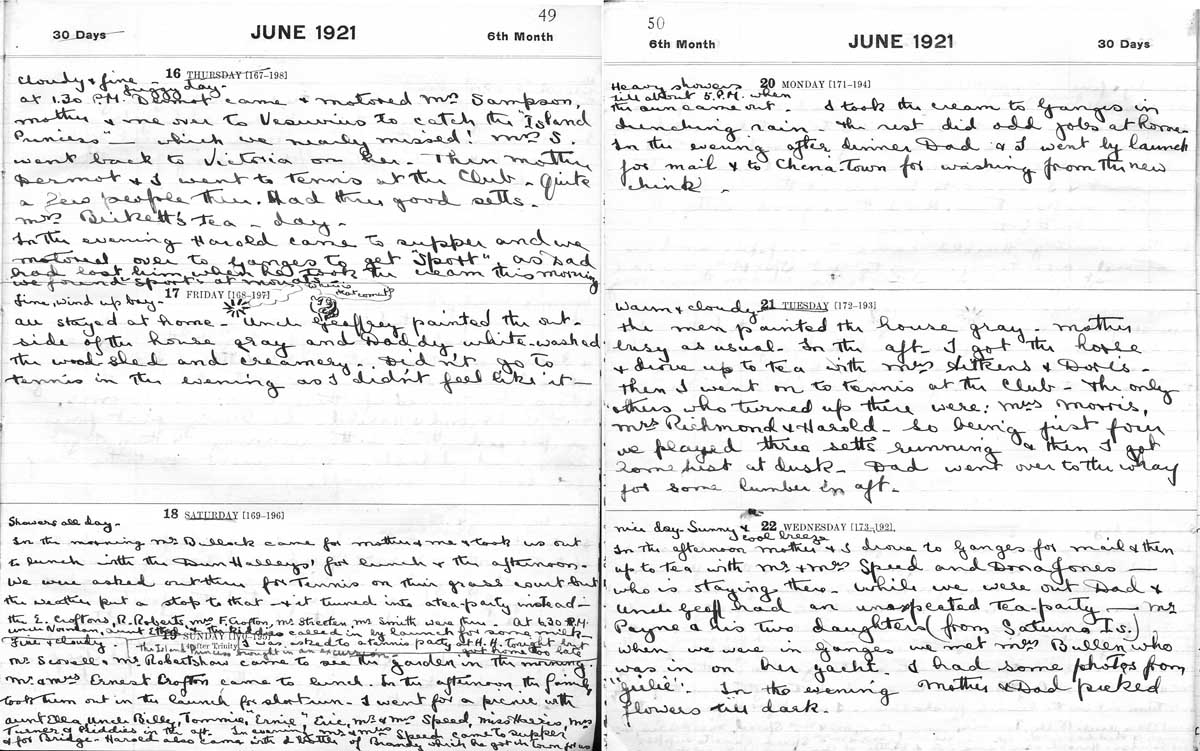 49
30 Days
JUNE 1921
6th Month
16 THURSDAY [167-198]
Cloudy & fine - day -
at 1.30 P.M. Dermot came & motored Mrs Sampson,
mother & me over to Vesuvius to catch the "Island
Princess" - which we nearly missed! Mrs S.
went back to Victoria on her. Then mother
Dermot & I went to tennis at the Club. Quite
a few people there. Had three good setts.
Mrs Birkett's tea - day -
In the evening Harold came to supper and we
motored over to Ganges to get "Sport", as Dad
had lost him when he took the cream this morning
we found "Sport" at
17 FRIDAY [168-197]
fine, wind up bay -
all stayed at home - Uncle Geoffrey painted the out-
side of the house gray and Daddy white-washed
the wood shed and creamery. Didn't go to
tennis in the evening as I didn't feel like it -
18 SATURDAY [169-196]
Showers all day -
In the morning Mr Bullock came for mother & me & took us out
to lunch with the Dun Halleys' for lunch & the afternoon -
We were asked out there for tennis on their grass court but
the weather put a stop to that - & it turned into a tea-party instead -
the E. Croftons, R. Roberts, Mrs F. Crofton, Mr Streeten, Mr Smith were there. At 6.30 P.M.
Uncle Norman, aunt called in by launch for some milk -
19 SUNDAY
fine & cloudy I was asked to a tennis party at H. H. tonight
The Island Princess brought in an excursion
Mr Scovell & Mr Robertshaw came to see the garden in the morning.
Mr & Mrs Ernest Crofton came to lunch. In the afternoon the family
took them out in the launch for short run. I went for a picnic with
aunt Ella, Uncle Billy, Tommie, Ernie, Eric, Mr & Mrs Speed, Miss Harris, Mrs
Turner & Kiddies in the aft. In evening Mr & Mrs Speed came to supper
& for Bridge - Harold also came with 2 bottles of Brandy which he got in town for us
50
6th Month
JUNE 1921
30 Days
20 MONDAY [171-194]
Heavy showers
till about 5. P.M. when
the sun came out. I took the cream to Ganges in
drenching rain. The rest did odd jobs at home -
In the evening after dinner Dad & I went by launch
for mail & to China-Town for washing from the new
chink -
21 TUESDAY [172-193]
Warm & cloudy
The men painted the house gray - Mother
busy as usual. In the aft. I got the horse
& drove up to tea with Mrs Aitkens & Doris -
Then I went on to tennis at the Club - the only
others who turned up there were: Mrs Morris,
Mrs Richmond & Harold - So being just four
we played three setts running & then I got
home just at dusk - Dad went over to the wharf
for some lumber in aft -
22 WEDNESDAY [173-192]
Nice day - Sunny &
cool breeze
In the afternoon mother & I drove to Ganges for mail & then
up to tea with Mr & Mrs Speed and Dona Jones -
who is staying there - While we were out Dad &
Uncle Geoff had an unexpected tea-party - Mr
Payne & his two daughters (from Saturna Is.)
when we were in Ganges we met Mrs Bullen who
was in on her yacht. I had some photos from
"Julie". In the evening Mother & Dad picked
flowers till dark.